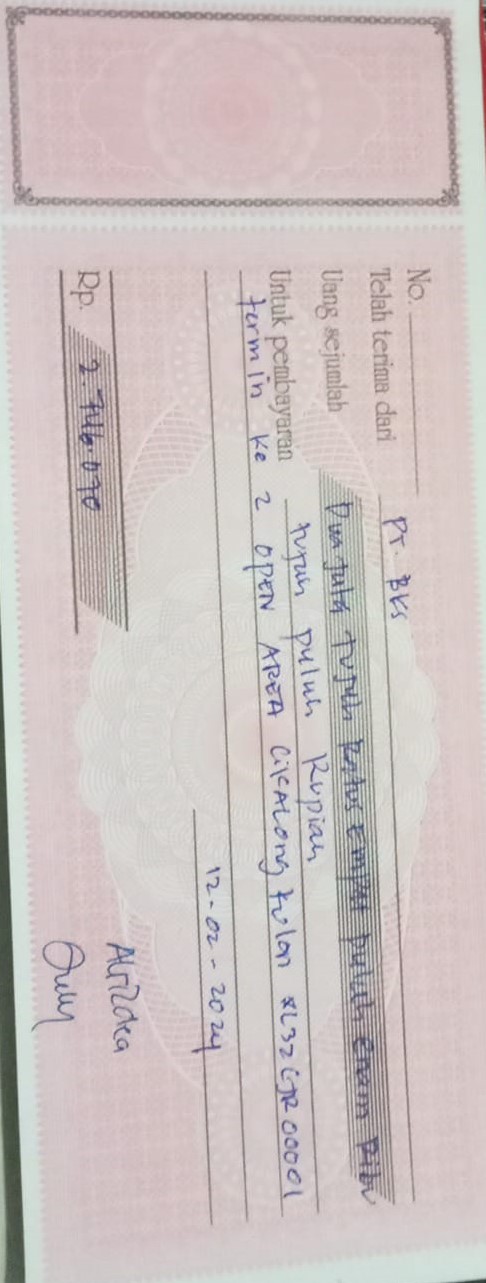 No.
Telah terima dari PT. BKS
Uang sejumlah Dua juta tujuh Ratus Empat puluh enam Ribu
tujuh puluh Rupiah
Untuk pembayaran
termin ke 2 OPEN AREA CiKALong kulon XL32CJR00001
12-02-2024
Rp. 2.746.070